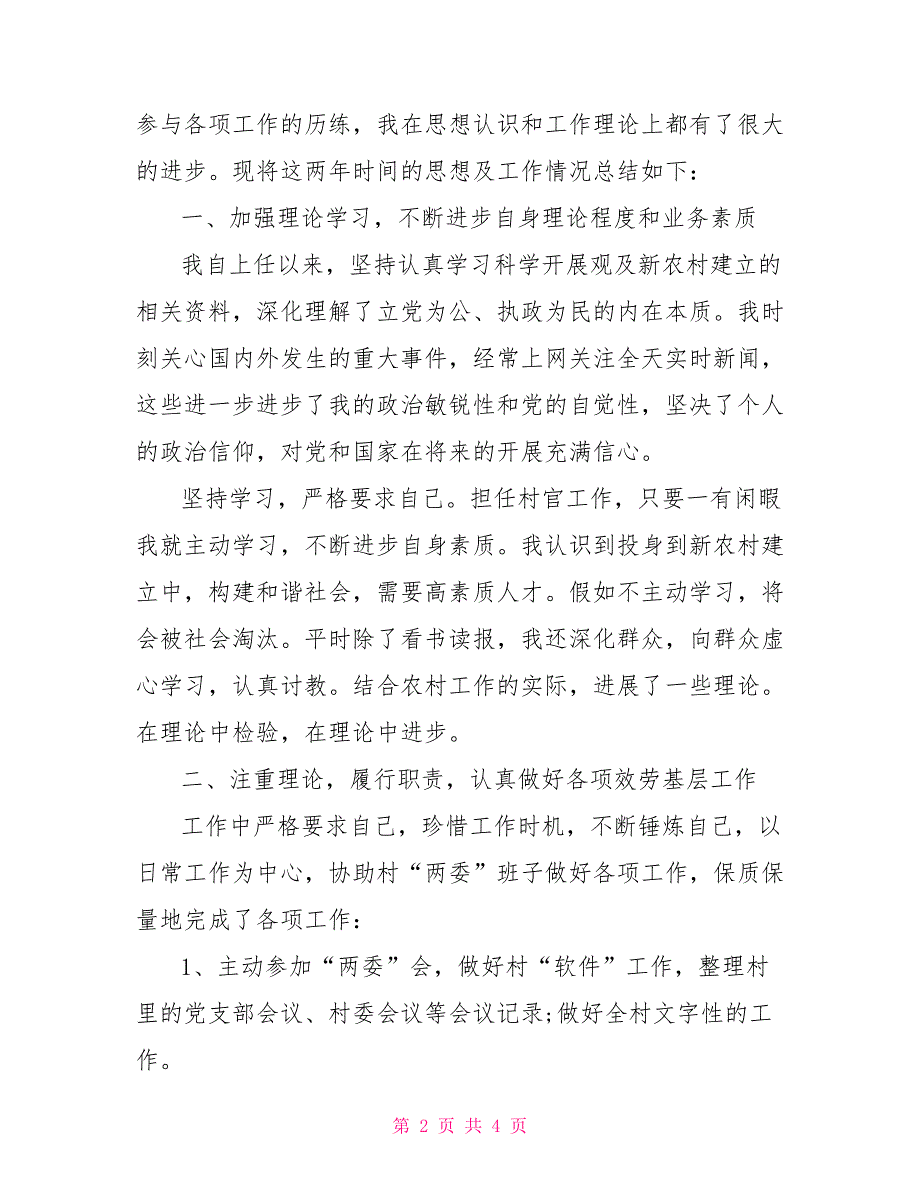 参与各项工作的历练，我在思想认识和工作理论上都有了很大
的进步。现将这两年时间的思想及工作情况总结如下：
一、加强理论学习，不断进步自身理论程度和业务素质
我自上任以来，坚持认真学习科学开展观及新农村建立的
相关资料，深化理解了立党为公、执政为民的内在本质。我时
刻关心国内外发生的重大事件，经常上网关注全天实时新闻，
这些进一步进步了我的政治敏锐性和党的自觉性，坚决了个人
的政治信仰，对党和国家在将来的开展充满信心。
坚持学习，严格要求自己。担任村官工作，只要一有闲暇
我就主动学习，不断进步自身素质。我认识到投身到新农村建
立中，构建和谐社会，需要高素质人才。假如不主动学习，将
会被社会淘汰。平时除了看书读报，我还深化群众，向群众虚
心学习，认真讨教。结合农村工作的实际，进展了一些理论。
在理论中检验，在理论中进步。
二、注重理论，履行职责，认真做好各项效劳基层工作
工作中严格要求自己，珍惜工作时机，不断锤炼自己，以
日常工作为中心，协助村“两委”班子做好各项工作，保质保
量地完成了各项工作：
1、主动参加“两委”会，做好村“软件”工作，整理村
里的党支部会议、村委会议等会议记录;做好全村文字性的工
作。
第 2 页 共 4 页